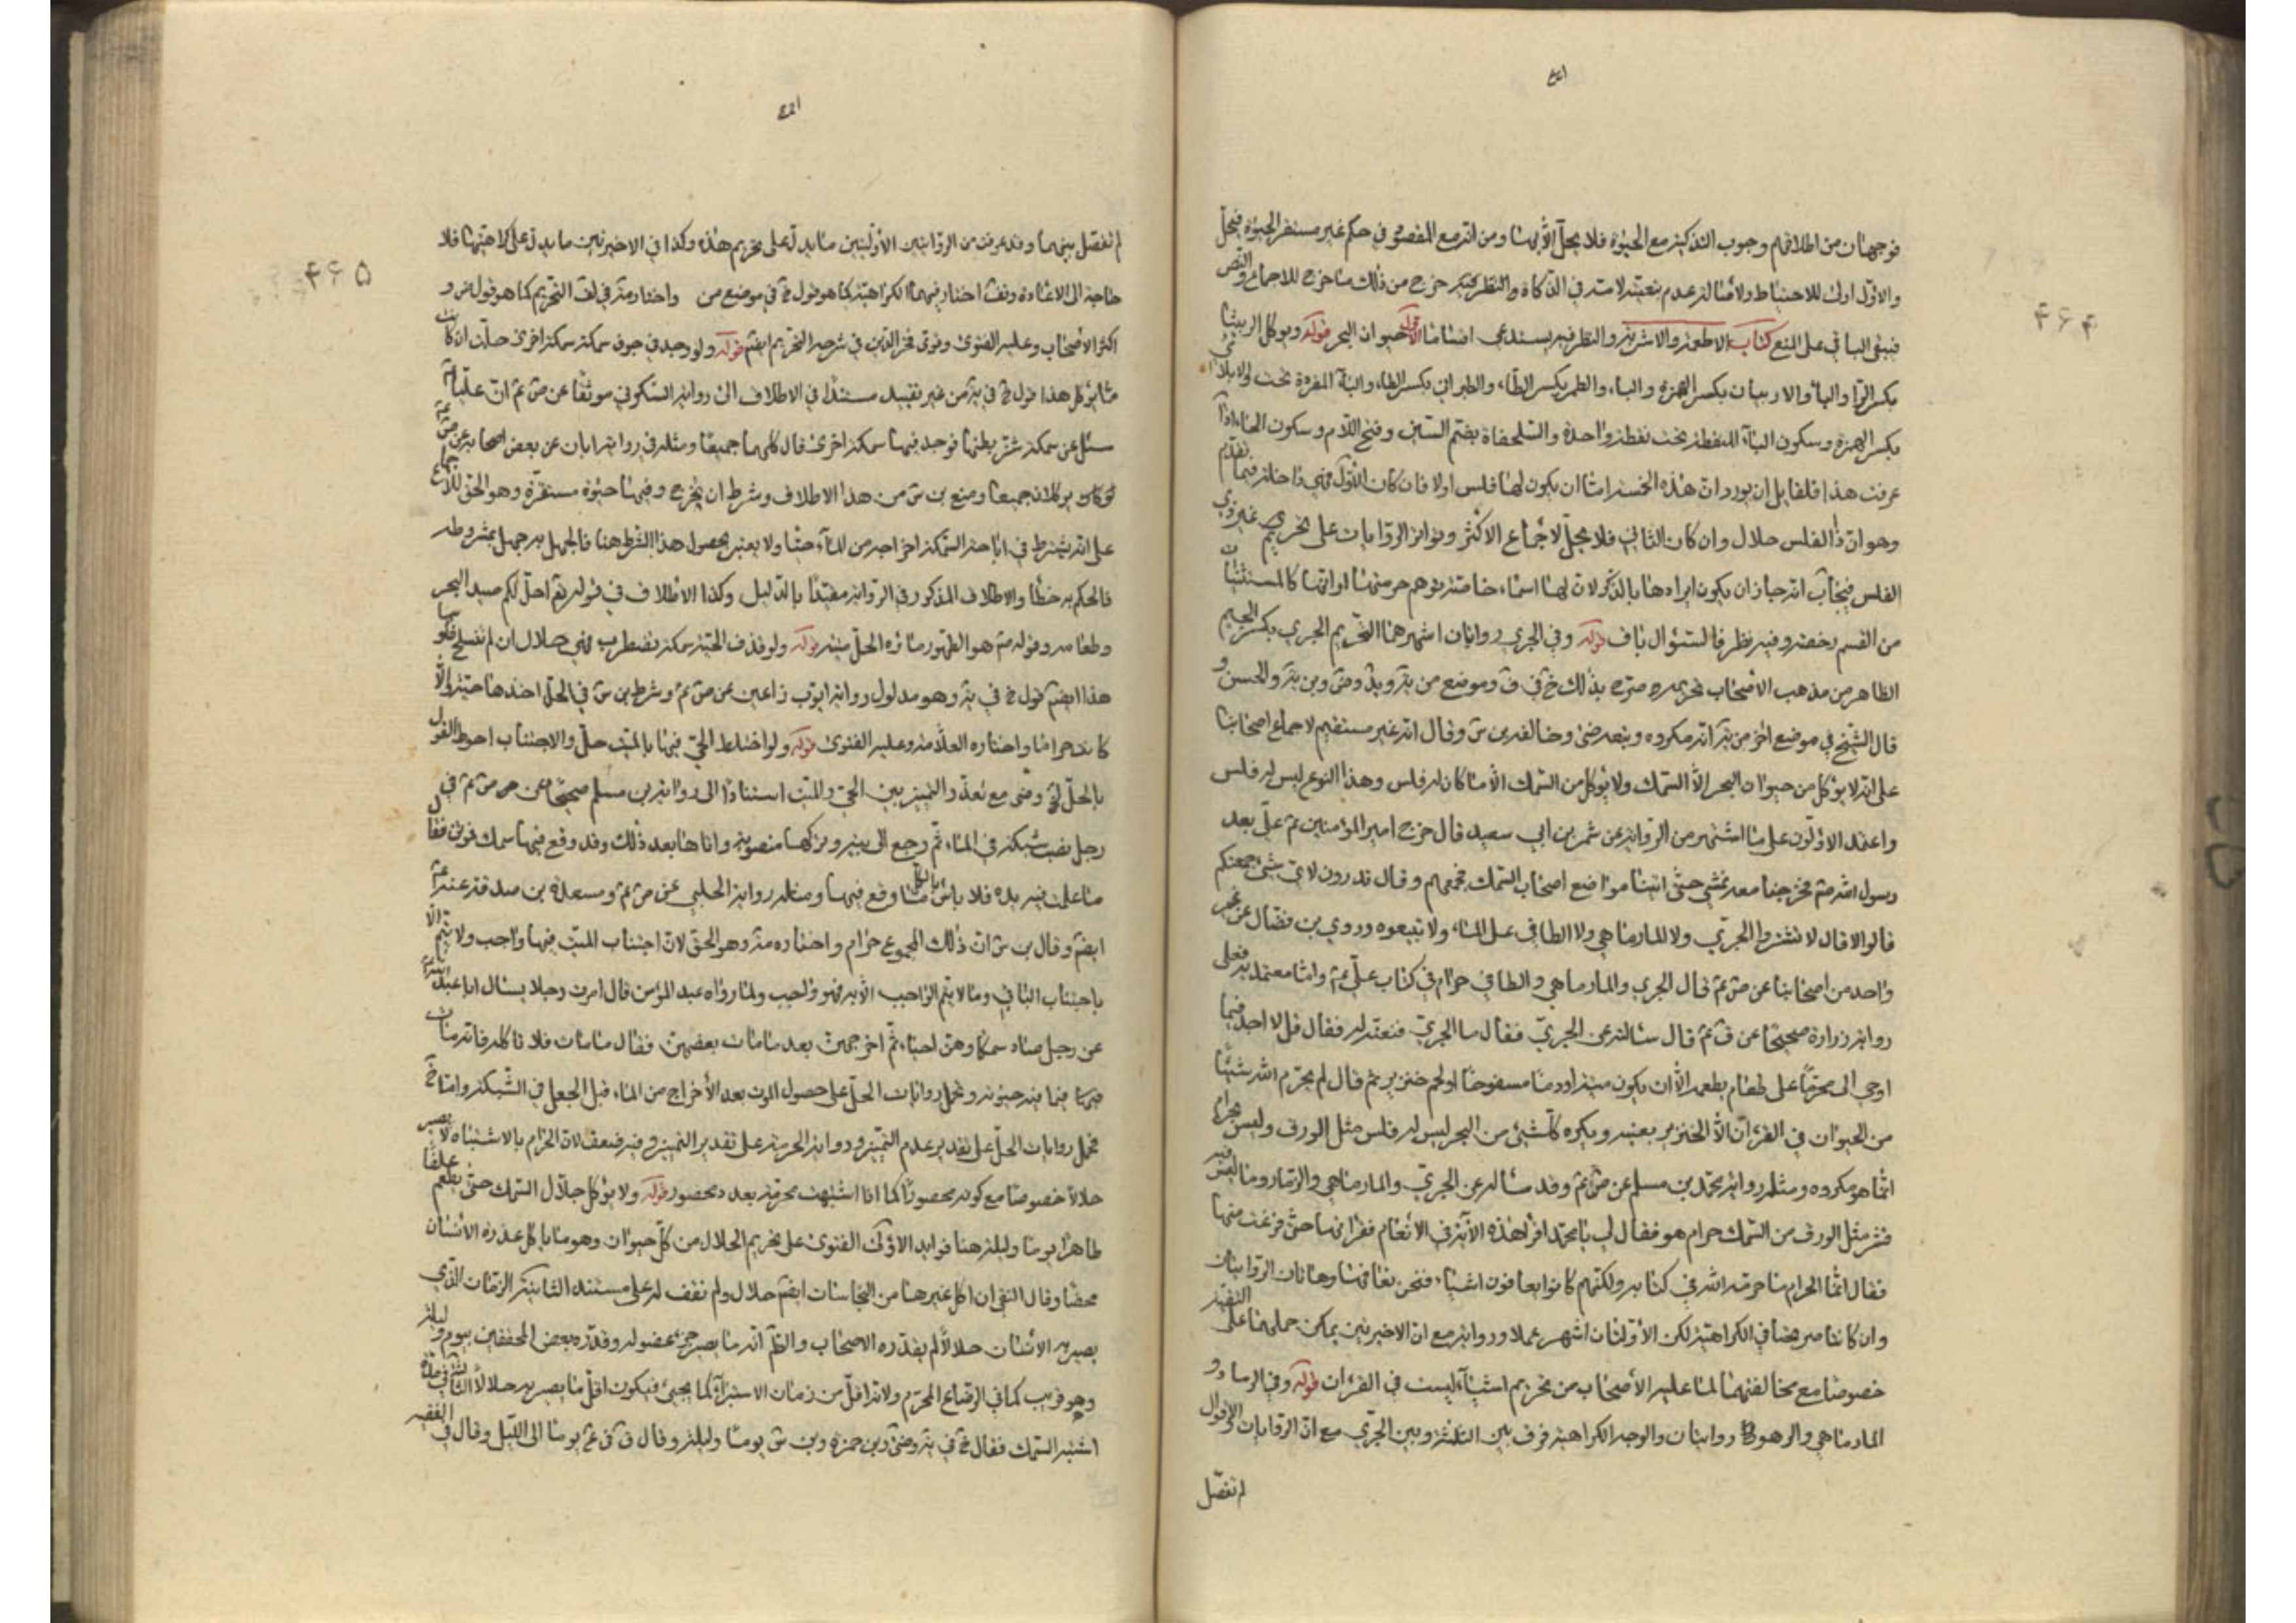 فوجهان من اطلاقهم وجوب التذكية مع الحيوة فلا يحلّ الّا بها ومن انّه مع المقصود في حكم غير مستقر الحيوة فيحلّ
والاوّل اولى للاحتياط ولأصالة عدم لامته في الذكاة والنظر خرج من ذلك ما خرج للاجماع والنص
فيبقى الباقي على المنع كتاب الاطعمة والاشربة والنظر فيه يستدعي اقساما الاوّل حيوان البحر قوله ويوكل الربيثا
بكسر الرّاء والباء والاربيان بكسر الهمزة والباء والطمر بكسر الطاء والطبراني بكسر الطاء والباء المفردة تحت والابلامي
بكسر الهمزة وسكون الباء المنقطة تحت نقطة واحدة والسلحفاة بضم السين وفتح اللام وسكون الحاء اذا
عرفت هذا فلقايل ان يورد انّ هذه الخمسة امّا ان يكون لها فلس اولا فان كان الاوّل فهي داخلة فيما تقدم
وهو انّ ذا الفلس حلال وان كان الثاني فلا يحلّ لاجماع الاكثر وتواتر الروايات على تحريم غير ذي
الفلس فيجاب انه جاز ان يكون ايرادها بالذكر لان لها اسماء خاصة توهم حرمتها لو انها كالمستثنيات
من القسم وفيه نظر فالسؤال باق قوله وفي الجري روايتان اشهرهما التحريم الجري بكسر الجيم
الظاهر من مذهب الأصحاب تحريمه صرّح بذلك خ في ف وموضع من يه وبد وضى وبن يه والحسن و
قال الشيخ في موضع آخر من يه انه مكروه وتبعه ضى وخالفه بن س وقال انه غير مستقيم لاجماع اصحابنا
على انه لا يؤكل من حيوان البحر الّا السمك ولا يؤكل من السمك الّا ما كان له فلس وهذا النوع ليس له فلس
واعتمد الاوّلون على ما اشتهر من الرواية عن شمر بن ابي سعيد قال خرج امير المؤمنين ع على بغلة
رسول الله ص فخرجنا معه نمشي حتّى انتهينا مواضع اصحاب السمك فجمعهم وقال تدرون لاي شيء جمعتكم
قالوا لا قال لا تشتروا الجرّي ولا المارماهي ولا الطافي على الماء ولا تبيعوه وروى بن فضّال عن غير
واحد من اصحابنا عن ص ع قال الجري والمارماهي والطافي حرام في كتاب علي ع وامّا معتمد يه فعلى
رواية زرارة صحيحًا عن ق ع قال سالته عن الجريّ فقال ما الجريّ فنعتّه له فقال قل لا اجد فيما
اوحي الي محرّمًا على طاعم يطعمه الّا ان يكون ميتة او دمًا مسفوحًا او لحم خنزير ثم قال لم يحرّم الله شيئًا
من الحيوان في القرءان الّا الخنزير بعينه ويكره كلّ شيء من البحر ليس له فلس مثل الورق وليس بحرام
انّما هو مكروه ومثله رواية محمد بن مسلم عن ص ع وقد ساله عن الجريّ والمارماهي والزمار وما ليس فيه
قشر مثل الورق من السمك حرام هو فقال لي يا محمد اقرأ هذه الآية في الأنعام فقرأتها حتّى فرغت منها
فقال انّما الحرام ما حرّمه الله في كتابه ولكنهم كانوا يعافون اشياء فنحن نعافها وهاتان الروايتان
وان كانتا صريحتا في الكراهية لكن الأولتان اشهر عملا ورواية مع ان الاخيرتين يمكن حملهما على التقية
خصوصا مع مخالفتهما لما عليه الأصحاب من تحريم اشياء ليست في القرءان قوله وفي الزمار و
المارماهي والزهو روايتان والوجه الكراهية فرق بين الثلثة وبين الجرّي مع انّ الروايات والاقوال
لم تفصّل
لم تفصّل بينهما وقد عرفت من الروايتين الأولتين ما يدلّ على تحريم هذه وكذا في الاخيرتين ما يدلّ على كراهيتها فلا
حاجة الى الاعادة وتفت اختار فيهما الكراهية كما هو قول خ في موضع من واختار مة في لف التحريم كما هو قول ض و
اكثر الأصحاب وعليه الفتوى وقوى فخر الدين في شرحه التحريم ايضًا قوله ولو وجد في جوف سمكة سمكة اخرى حلّت ان كانت
مما يؤكل هذا قول خ في يه من غير تقييد مستندًا في الاطلاق الى رواية السكوني موثقًا عن ص ع انّ عليًا ع
سئل عن سمكة شق بطنها فوجد فيها سمكة اخرى قال كلهما جميعًا ومثله في رواية ابان عن بعض اصحابه عن ص ع
يوكلان جميعا ومنع بن س من هذا الاطلاق وشرط ان تخرج وفيها حيوة مستقرة وهو الحق للاجماع
على انه يشترط في اباحة السمكة اخراجه من الماء حيًا ولا يعتبر بحصول هذا الشرط هنا فالجهل به جهل بمشروطه
فالحكم به خطأ والاطلاق المذكور في الرواية مقيدًا بالدليل وكذا الاطلاق في قوله تع احلّ لكم صيد البحر
وطعامه وقوله ص هو الطهور ماؤه الحلّ ميته قوله ولو قذف الحيّة سمكة تضطرب فهي حلال ان لم تنسلخ فلوسها
هذا ايضًا قول خ في يه وهو مدلول رواية ايوب بن اعين عن ص ع وشرط بن س في الحلّ اخذها حيّة والّا
كانت حرامًا واختاره العلّامة وعليه الفتوى قوله ولو اختلط الحيّ فيها بالميّت حلّ والاجتناب احوط القول
بالحلّ لخ وضى مع تعذّر التميز بين الحيّ والميّت استنادًا الى رواية بن مسلم صحيحًا عن ص ع في
رجل نصب شبكة في الماء ثمّ رجع الى بيته وتركها منصوبة واتاها بعد ذلك وقد وقع فيها سمك فموتن فقال
ما عملت يده فلا باس باكل ما وقع فيها ومثله رواية الحلبي عن ص ع ومسعدة بن صدقة عنه ع
ايضًا وقال بن س انّ ذلك المجموع حرام واختاره مة وهو الحق لانّ اجتناب الميّت فيها واجب ولا يتم الّا
باجتناب الباقي وما لا يتم الواجب الّا به فهو واجب ولما رواه عبد المؤمن قال امرت رجلا يسال ابا عبد الله ع
عن رجل صاد سمكا وهنّ احياء ثمّ اخرجهنّ بعد ما مات بعضهنّ فقال ما مات فلا تاكله فانه مات
فيما فيه حيوته وتحمل روايات الحلّ على حصول الموت بعد الأخراج من الماء قبل الجعل في الشبكة وامّا خ
فحمل روايات الحلّ على تقدير عدم التميّز ورواية الحرمة على تقدير التميز وفيه ضعف لانّ الحرام بالاشتباه لا يصير
حلالا خصوصًا مع كونه محصورًا كما اذا اشتبهت محرّمة بعدد محصور قوله ولا يؤكل جلّال السمك حتّى يطعم علفًا
طاهرًا يومًا وليلة هنا فوايد الاولى الفتوى على تحريم الجلال من كلّ حيوان وهو ما ياكل عذرة الأنسان
محضًا وقال التقي ان اكل غيرها من النجاسات ايضًا حلال ولم نقف له على مستند الثانية الزمان الذي
يصير به الأنسان جلالًا لم يقدّره الاصحاب والظّ انّه ما يصير جزء عضو له وقدّره بعض المحققين بيوم وليلة
وهو قريب كما في الرضاع المحرّم ولانه اقلّ من زمان الاستبراء كما يجيئ فيكون اقلّ ما يصير به جلالا الثالثة في مدة
استبراء السمك فقال خ في يه وضى وبن حمزة وبن س يومًا وليلة وقال ق في ع يومًا الى اللّيل وقال في الفقيه